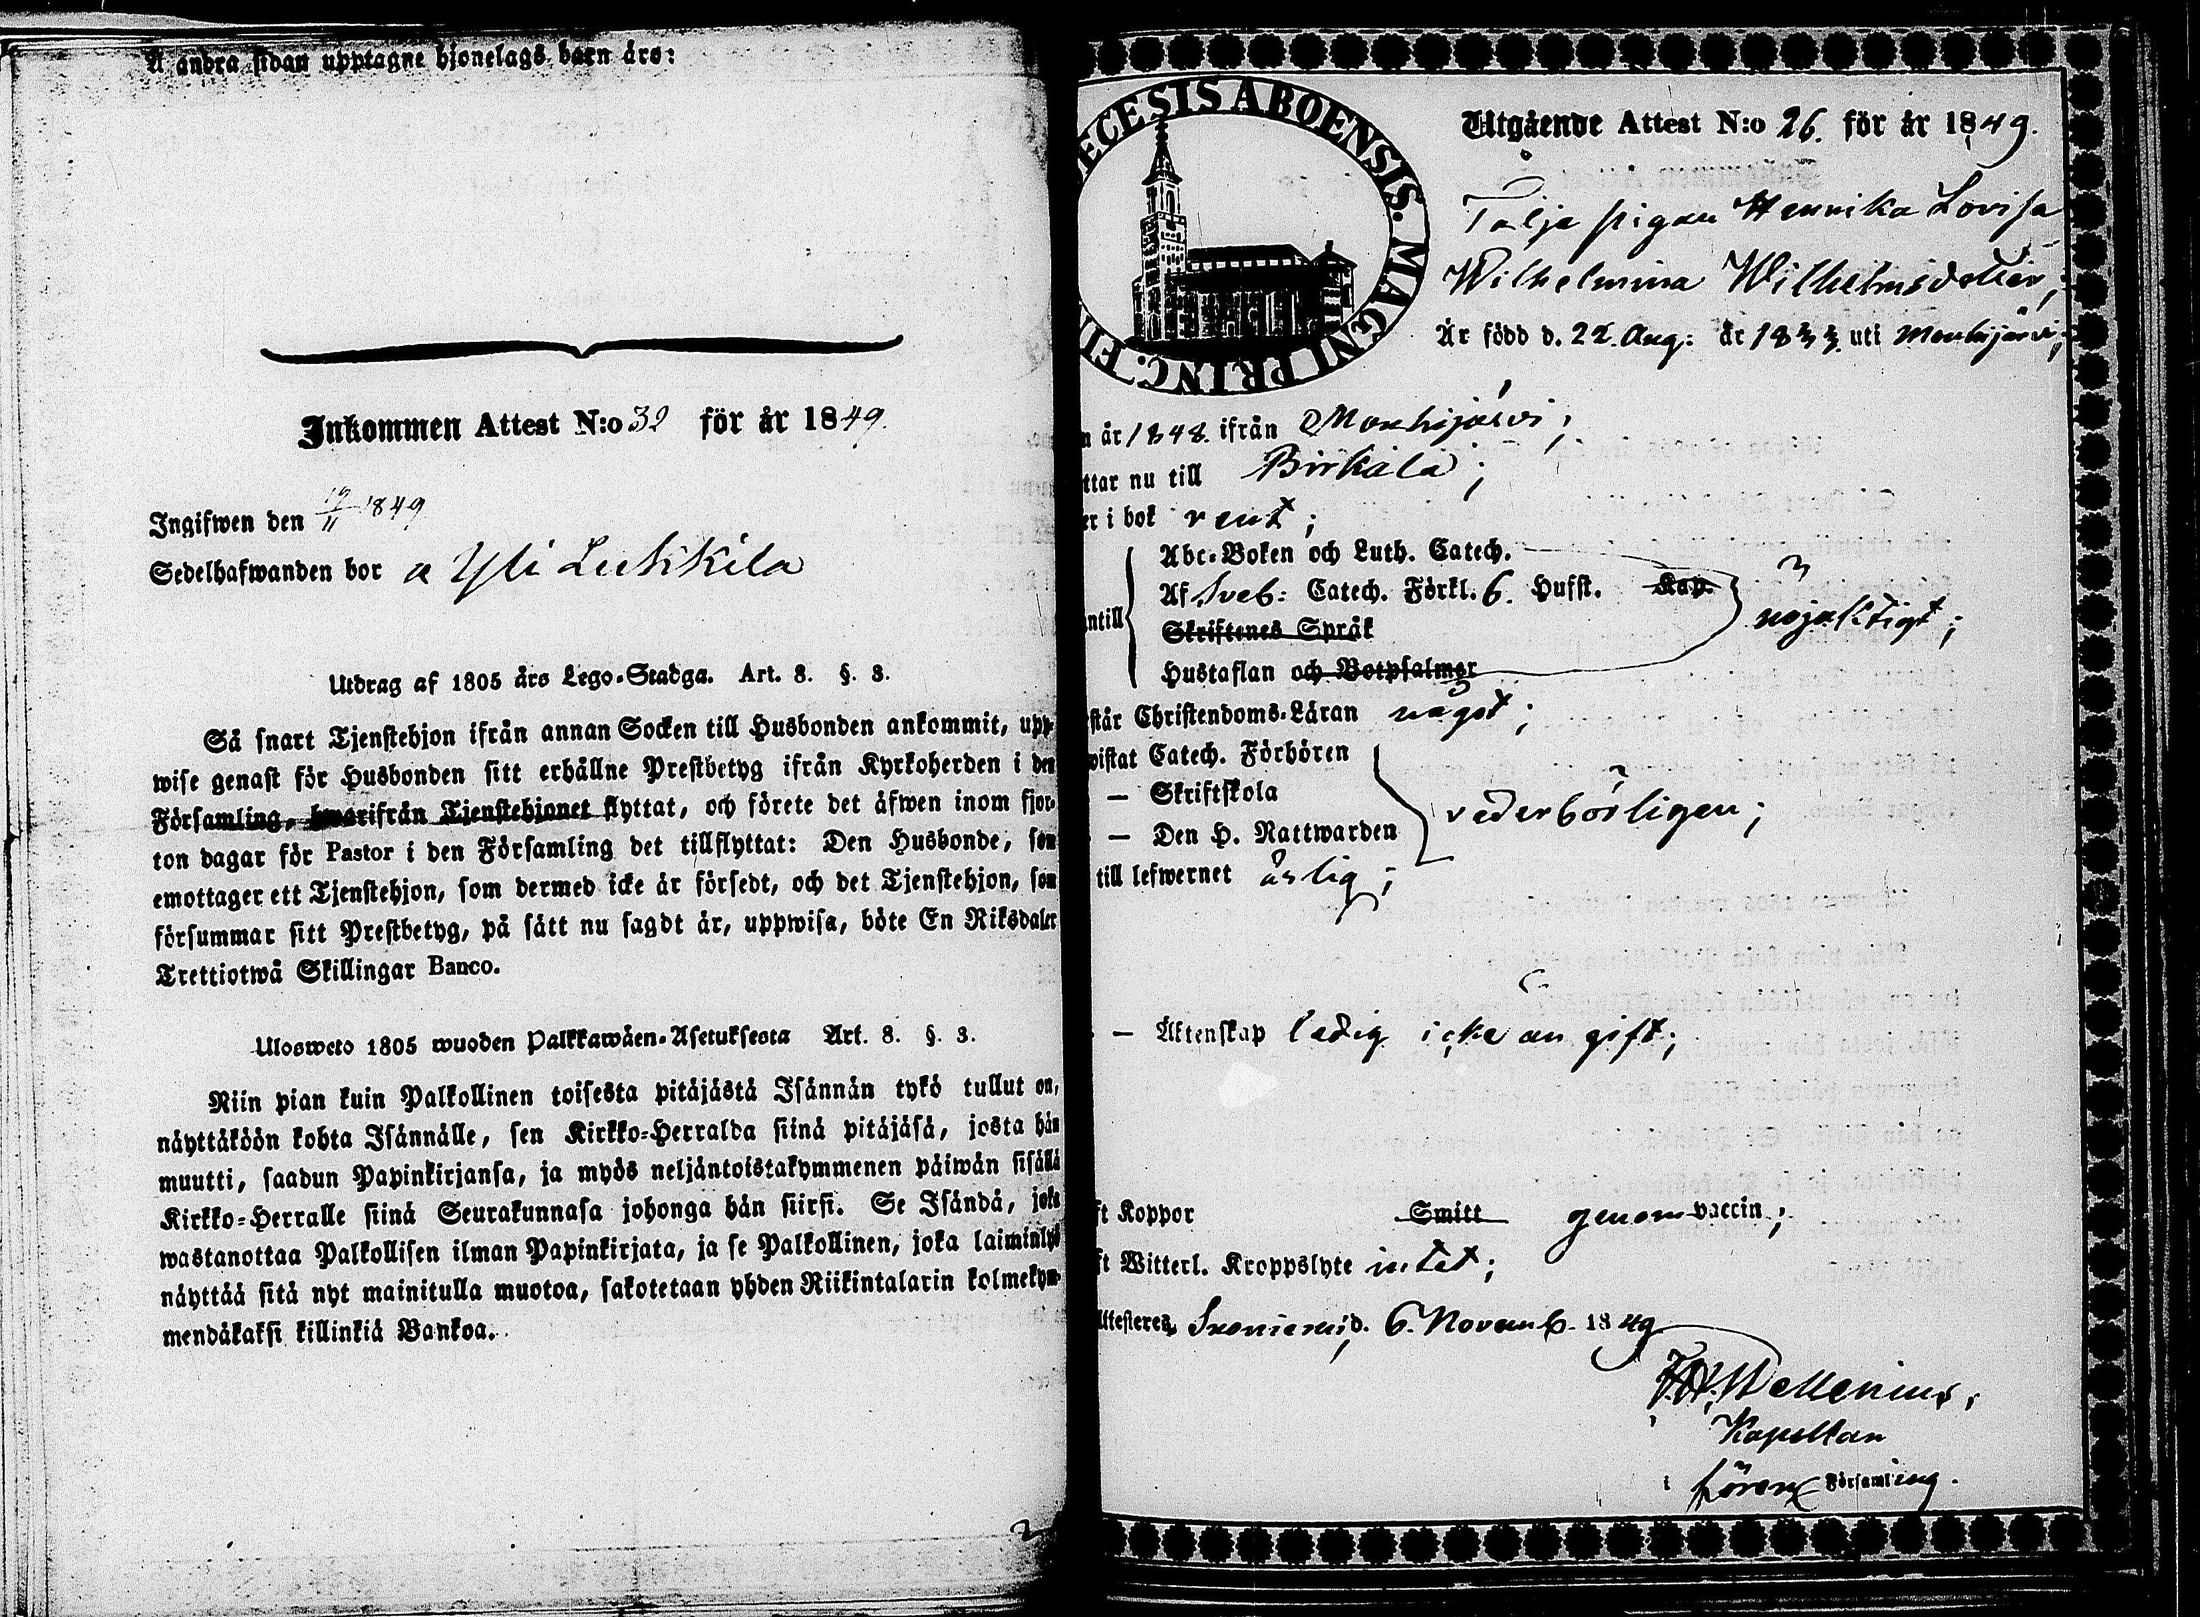 Å andra sidan upptagne hjonelags barn äro:
Inkommen Attest N:o 32 för år 1849.
Ingifwen den 19/11 1849
Sedelhafwanden bor a Yli Lukkila
Utdrag af 1805 års Lego-Stadga. Art. 8. §. 3.
Så snart Tjenstehjon ifrån annan Socken till Husbonden ankommit, upp-
wise genast för Husbonden sitt erhållne Prestbetyg ifrån Kyrkoherden i den
Församling, hwarifrån Tjenstehjonet flyttat, och förete det äfwen inom fjor-
ton dagar för Pastor i den Församling det tillflyttat: Den Husbonde, som
emottager ett Tjenstehjon, som dermed icke är försedt, och det Tjenstehjon, som
försummar sitt Prestbetyg, på sätt nu sagdt är, uppwisa, böte En Riksdaler
Trettiotwå Skillingar Banco.
Ulosweto 1805 wuoden Palkkawäen-Asetuksesta Art. 8. §. 3.
Niin pian kuin Palkollinen toisesta pitäjästä Isännän tykö tullut on,
näyttäköön kohta Isännälle, sen Kirkko-Herralda siinä pitäjäsä, josta hän
muutti, saadun Papinkirjansa, ja myös neljäntoistakymmenen päiwän sisällä
Kirkko-Herralle siinä Seurakunnasa johonga hän siirsi. Se Isändä, joka
wastanottaa Palkollisen ilman Papinkirjata, ja se Palkollinen, joka laiminlyö
näyttää sitä nyt mainitulla muotoa, sakotetaan yhden Riikintalarin kolmekym-
mendäkaksi killinkiä Bankoa.
ECESIS ABOENSIS. MAGNI PRINC. FI
Utgående Attest N:o 26. för år 1849.
pigan Henrika Lovisa
Wilhelmina Wilhelmsdotter;
Är född d. 22. Aug: år 1833 uti Mouhijärvi;
n år 1848. ifrån Mouhijärvi;
ttar nu till Birkala;
er i bok rent;
Abc-Boken och Luth. Catech.
Af Sveb: Catech. Förkl. 6. Hufst. Kap.
nöjaktigt;
ntill
Skriftenes Språk
Hustaflan och Botpsalmer
står Christendoms-Läran något;
wistat Catech. Förhören
— Skriftskola
vederbörligen;
— Den H. Nattwarden
till lefwernet ärlig;
— Äktenskap ledig icke än gift;
ft Koppor Smitt genom vaccin;
ft Witterl. Kroppslyte intet;
ttesteres, d. 6. Novemb. 1849
Wellenius,
Kapellan
i Församling.